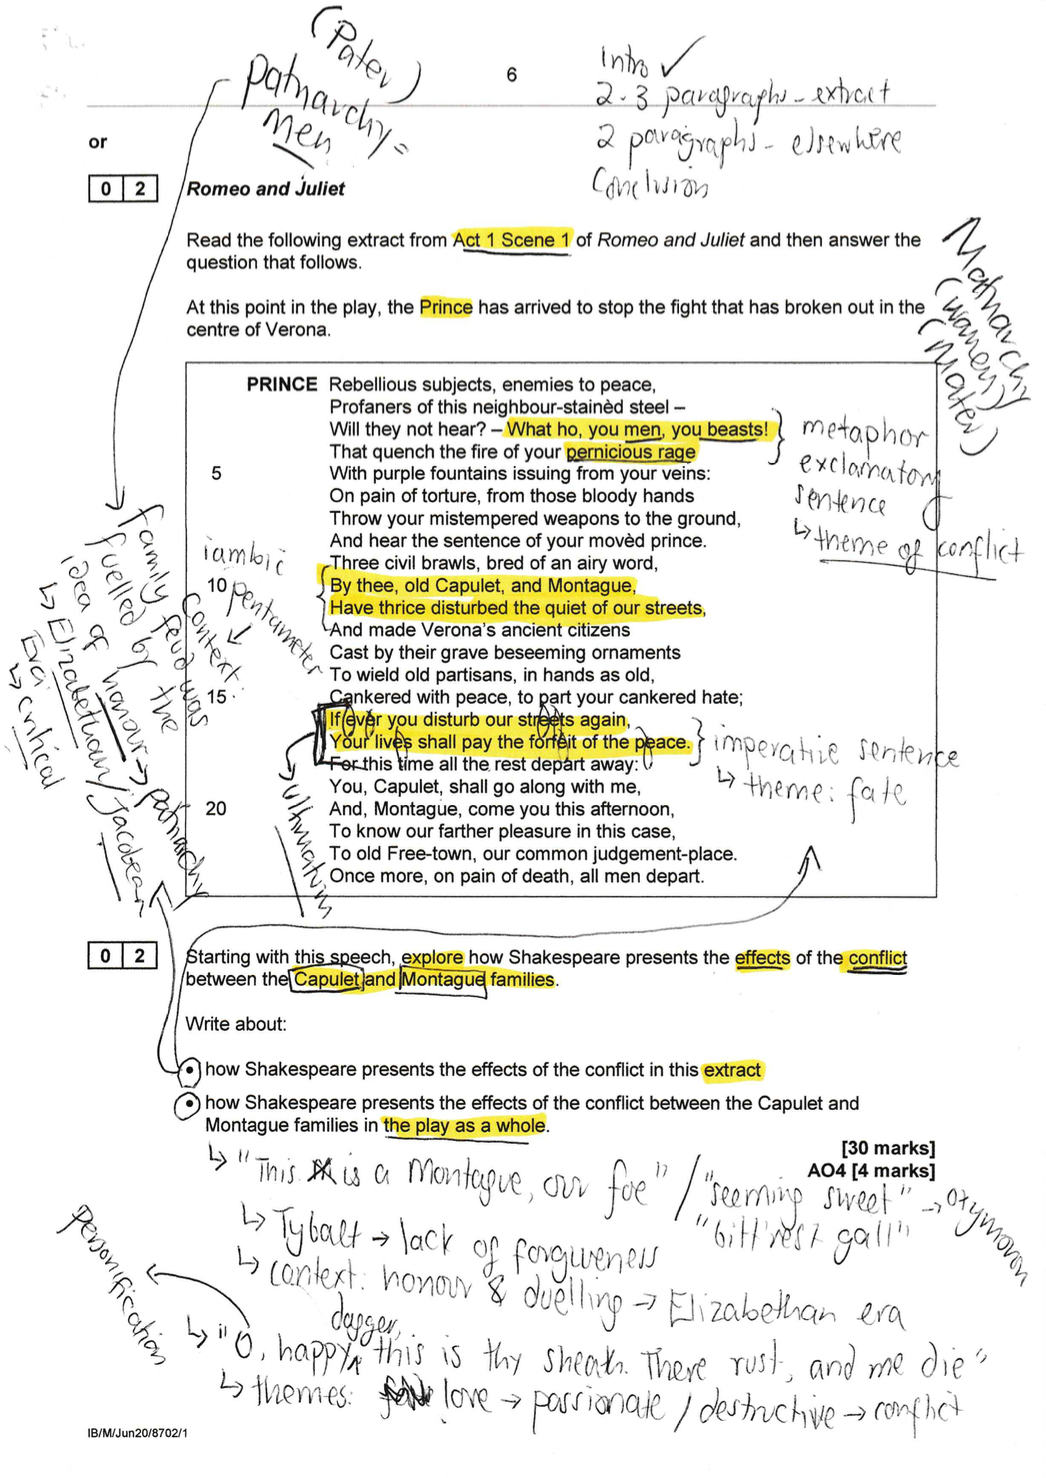 (Pater)
patriarchy =
men
6
Intro ✓
2-3 paragraphs - extract
2 paragraphs - elsewhere
Conclusion
or
0 2
Romeo and Juliet
Matriarchy
(women)
(Mater)
Read the following extract from Act 1 Scene 1 of Romeo and Juliet and then answer the
question that follows.
At this point in the play, the Prince has arrived to stop the fight that has broken out in the
centre of Verona.
PRINCE Rebellious subjects, enemies to peace,
Profaners of this neighbour-stainèd steel –
Will they not hear? – What ho, you men, you beasts!
That quench the fire of your pernicious rage
5 With purple fountains issuing from your veins:
On pain of torture, from those bloody hands
Throw your mistempered weapons to the ground,
And hear the sentence of your movèd prince.
Three civil brawls, bred of an airy word,
10 By thee, old Capulet, and Montague,
Have thrice disturbed the quiet of our streets,
And made Verona's ancient citizens
Cast by their grave beseeming ornaments
To wield old partisans, in hands as old,
15 Cankered with peace, to part your cankered hate;
If ever you disturb our streets again,
Your lives shall pay the forfeit of the peace.
For this time all the rest depart away:
You, Capulet, shall go along with me,
20 And, Montague, come you this afternoon,
To know our farther pleasure in this case,
To old Free-town, our common judgement-place.
Once more, on pain of death, all men depart.
metaphor
exclamatory
sentence
↳ theme of conflict
iambic
pentameter
context:
family feud was
fuelled by the
idea of honour → patriarchy
↳ Elizabethan/Jacobean
Era
↳ critical
imperative sentence
↳ theme: fate
ultimatum
0 2
Starting with this speech, explore how Shakespeare presents the effects of the conflict
between the Capulet and Montague families.
Write about:
• how Shakespeare presents the effects of the conflict in this extract
• how Shakespeare presents the effects of the conflict between the Capulet and
Montague families in the play as a whole.
[30 marks]
AO4 [4 marks]
↳ "This is a Montague, our foe" / "seeming sweet" → oxymoron
"bitt'rest gall"
↳ Tybalt → lack of forgiveness
↳ context: honour & duelling → Elizabethan era
personification
↳ "O, happy dagger, this is thy sheath. There rust, and me die"
↳ themes: love → passionate / destructive → conflict
IB/M/Jun20/8702/1